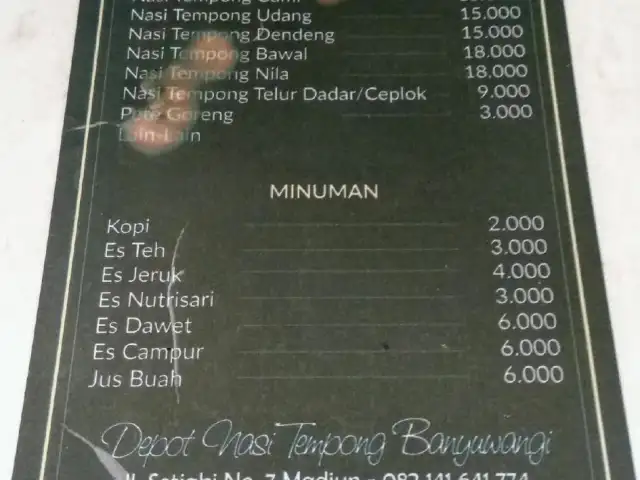 Nasi Tempong Cumi
Nasi Tempong Udang 15.000
Nasi Tempong Dendeng 15.000
Nasi Tempong Bawal 18.000
Nasi Tempong Nila 18.000
Nasi Tempong Telur Dadar/Ceplok 9.000
Pete Goreng 3.000
Lain-Lain
MINUMAN
Kopi 2.000
Es Teh 3.000
Es Jeruk 4.000
Es Nutrisari 3.000
Es Dawet 6.000
Es Campur 6.000
Jus Buah 6.000
Depot Nasi Tempong Banyuwangi
Jl. Setiabi No. 7 Madiun - 082 141 641 774